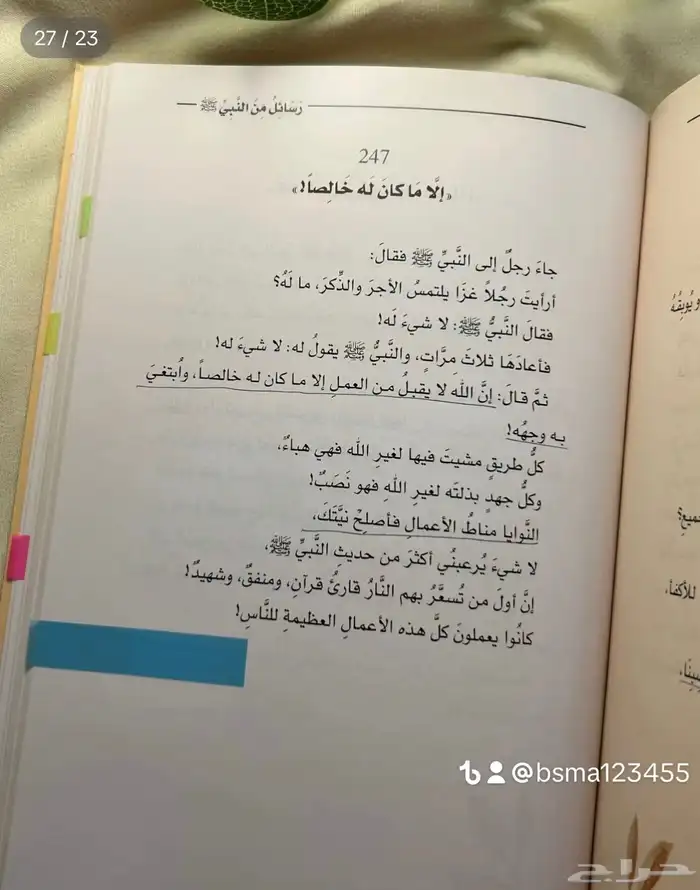 27 / 23
رَسَائِلُ مِنَ النَّبِيِّ ﷺ
247
«إِلَّا مَا كَانَ لَه خَالِصاً!»
جاءَ رجلٌ إلى النَّبيِّ ﷺ فقالَ:
أرأيتَ رجُلاً غزَا يلتمسُ الأجرَ والذِّكرَ، ما لَهُ؟
فقالَ النَّبيُّ ﷺ: لا شيءَ لَه!
فأعادَهَا ثلاثَ مرَّاتٍ، والنَّبيُّ ﷺ يقولُ له: لا شيءَ له!
ثمَّ قالَ: إنَّ الله لا يقبلُ من العملِ إلا ما كان له خالصاً، وابتغيَ
به وجهُه!
كلُّ طريقٍ مشيتَ فيها لغيرِ الله فهي هباءٌ،
وكلُّ جهدٍ بذلتَه لغيرِ اللهِ فهو نَصَبٌ!
النَّوايا مناطُ الأعمالِ فأصلِحْ نيَّتَكَ،
لا شيءَ يُرعبنُي أكثرَ من حديثِ النَّبيِّ ﷺ،
إنَّ أولَ من تُسعَّرُ بهم النَّارُ قارئُ قرآنٍ، ومنفقٌ، وشهيدٌ!
كانُوا يعملونَ كلَّ هذه الأعمالِ العظيمةِ للنَّاسِ!
ويُوبِقُهُ
للأكفأ،
@bsma123455
حراج